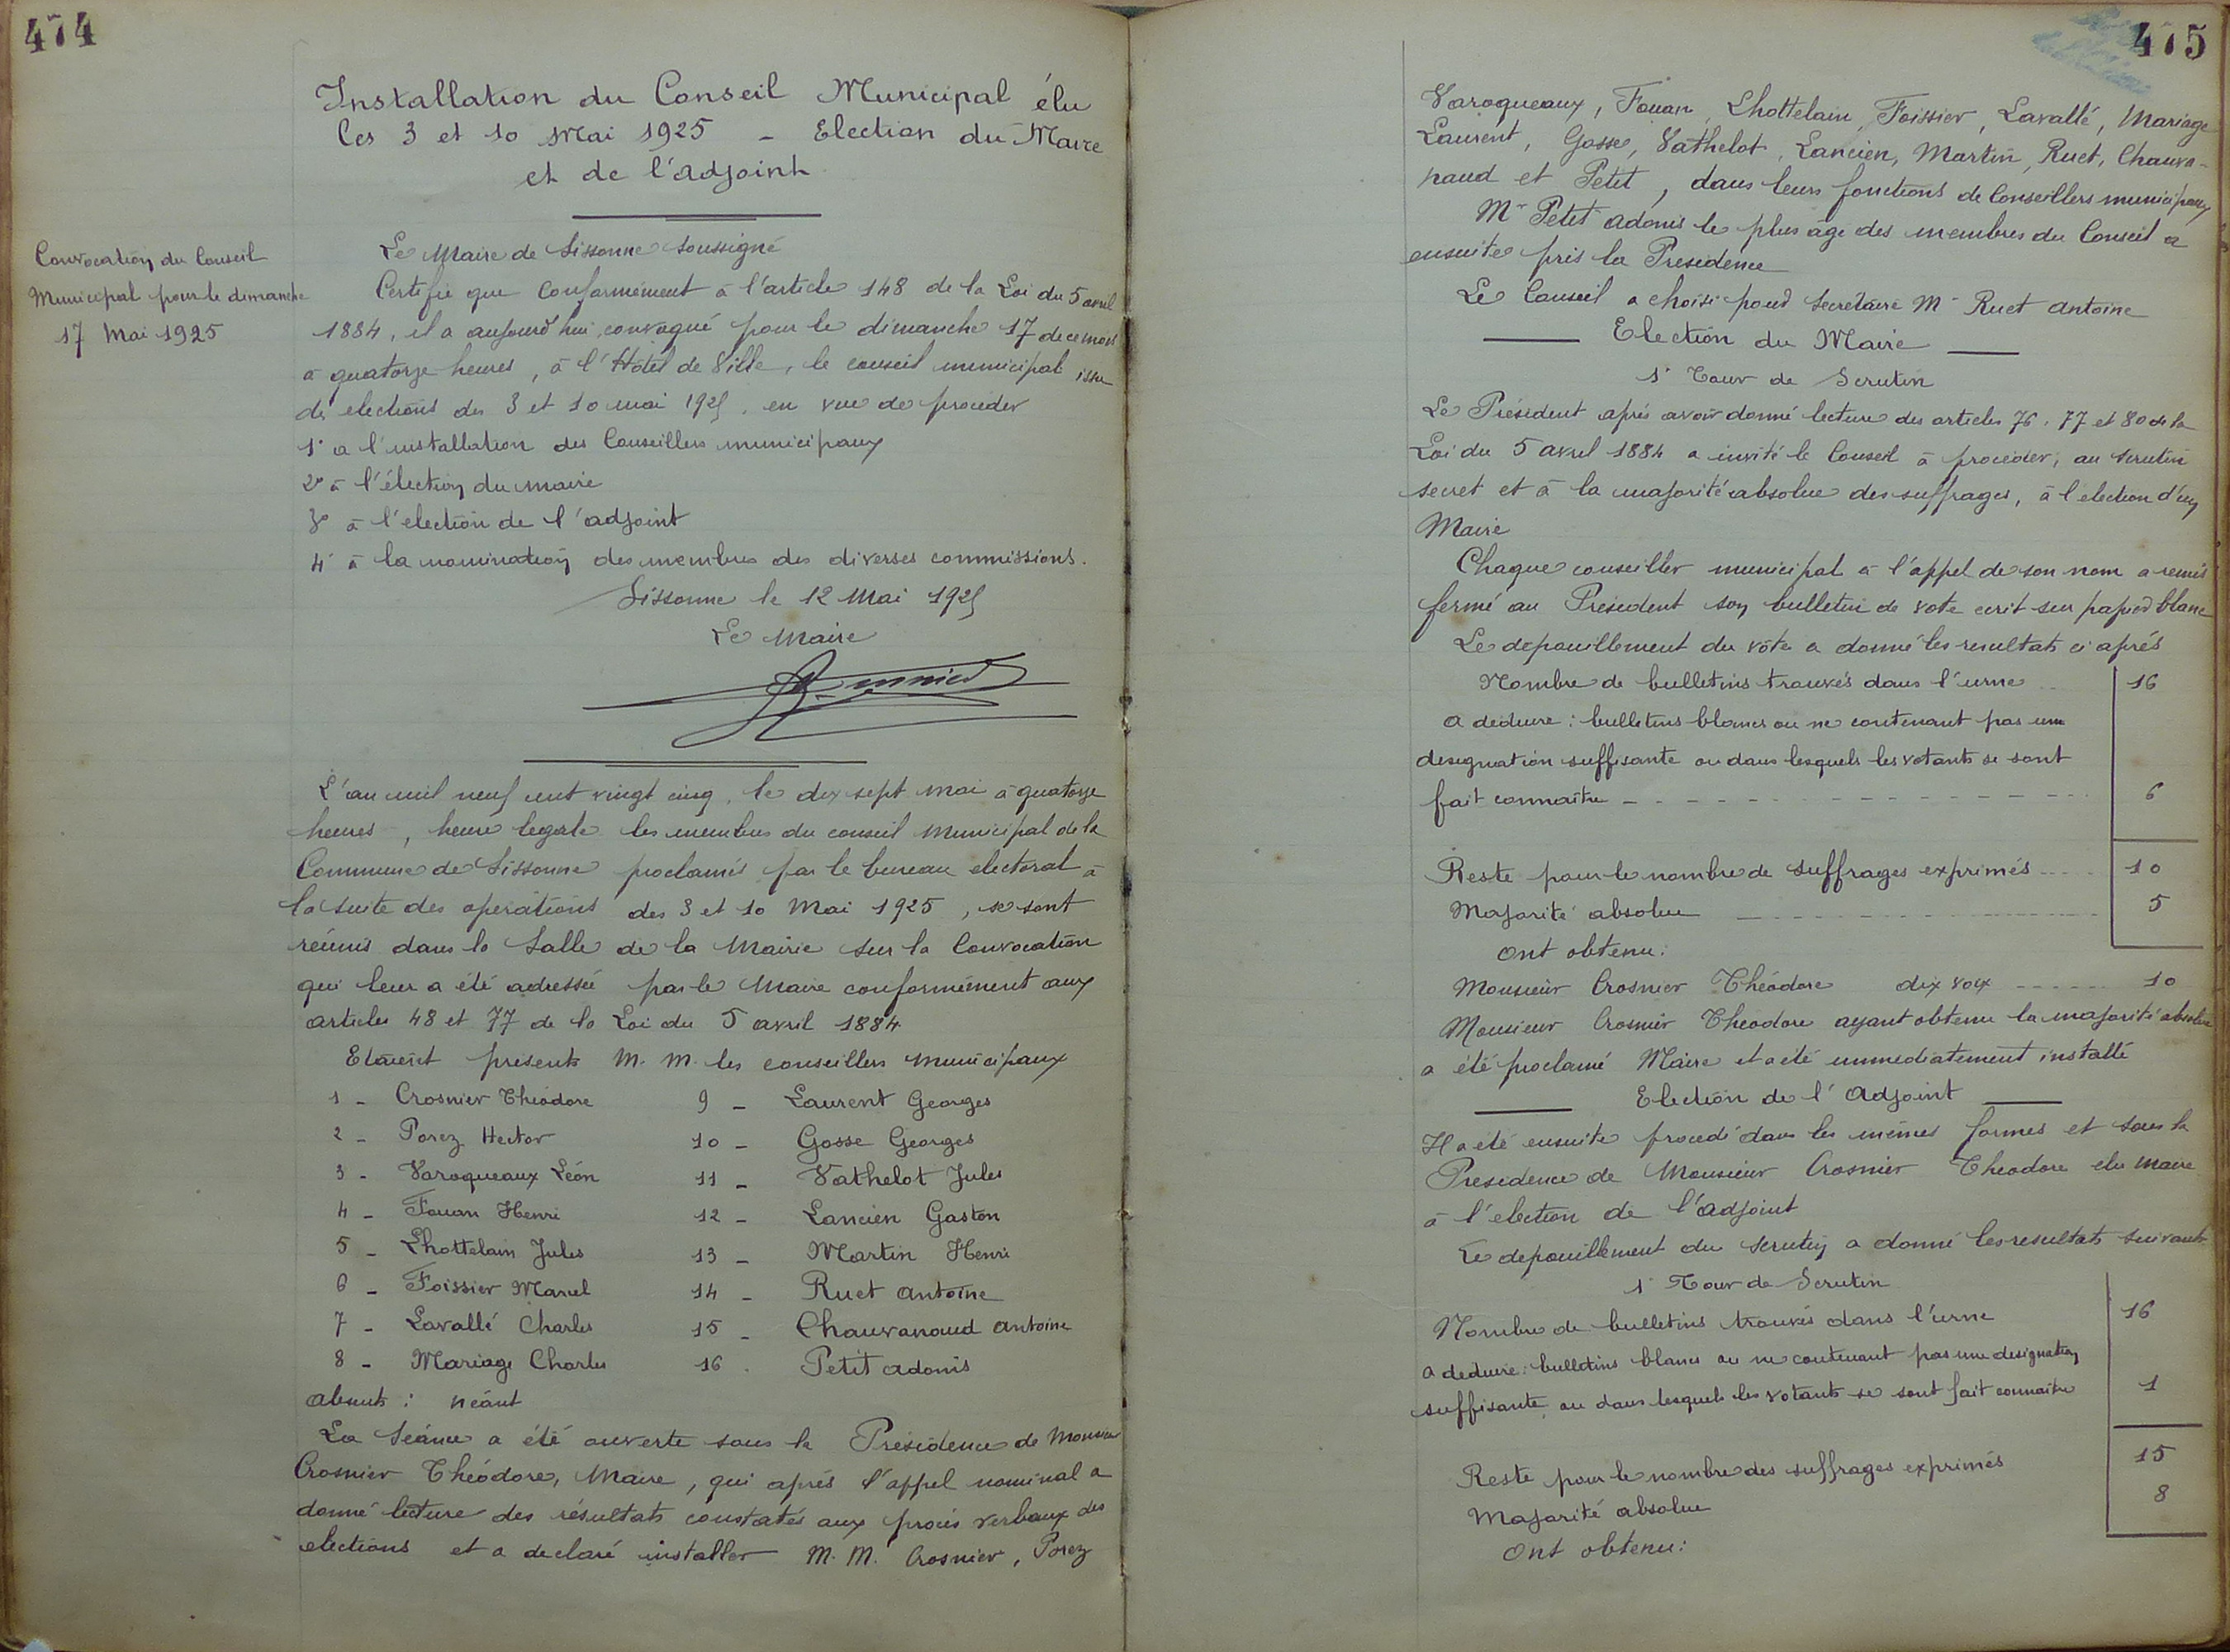 474
Installation du Conseil Municipal élu
les 3 et 10 Mai 1925 - Election du Maire
et de l'adjoint
Convocation du Conseil
Municipal pour le dimanche
17 Mai 1925
Le Maire de Sissonne soussigné
Certifie que Conformément à l'article 148 de la Loi du 5 avril
1884, il a aujourd'hui convoqué pour le dimanche 17 de ce mois
à quatorze heures, à l'Hôtel de Ville, le conseil municipal issu
des elections des 3 et 10 mai 1925, en vue de proceder
1° a l'installation des Conseillers municipaux
2° à l'élection du maire
3° à l'election de l'adjoint
4° à la nomination des membres des diverses commissions.
Sissonne le 12 Mai 1925
Le Maire
L'an mil neuf cent vingt cinq, le dix sept mai à quatorze
heures, heure legale les membres du conseil municipal de la
Commune de Sissonne proclamés par le bureau electoral à
la suite des operations des 3 et 10 Mai 1925, se sont
réunis dans la Salle de la Mairie sur la Convocation
qui leur a été adressée par le Maire conformément aux
articles 48 et 77 de la Loi du 5 avril 1884
Etaient presents M. M. les conseillers municipaux
1 - Crosnier Théodore 9 - Laurent Georges
2 - Porez Hector 10 - Gosse Georges
3 - Varoqueaux Léon 11 - Vathelot Jules
4 - Fouan Henri 12 - Lancien Gaston
5 - Lhottelain Jules 13 - Martin Henri
6 - Foissier Marcel 14 - Ruet Antoine
7 - Lavallé Charles 15 - Chauvanaud Antoine
8 - Mariage Charles 16 - Petit Adonis
Absents : néant
La Séance a été ouverte sous la Présidence de Monsieur
Crosnier Théodore, Maire, qui après l'appel nominal a
donné lecture des résultats constatés aux procès verbaux des
elections et a declaré installer M. M. Crosnier, Porez
475
Varoqueaux, Fouan, Lhottelain, Foissier, Lavallé, Mariage
Laurent, Gosse, Vathelot, Lancien, Martin, Ruet, Chauva-
naud et Petit, dans leurs fonctions de Conseillers municipaux
Mr Petit Adonis le plus âgé des membres du Conseil a
ensuite pris la Presidence
Le Conseil a choisi pour Secrétaire Mr Ruet Antoine
Election du Maire
1° Tour de Scrutin
Le Président après avoir donné lecture des articles 76, 77 et 80 de la
Loi du 5 avril 1884 a invité le Conseil à proceder, au scrutin
secret et à la majorité absolue des suffrages, à l'election d'un
Maire
Chaque conseiller municipal à l'appel de son nom a remis
fermé au President son bulletin de vote ecrit sur papier blanc
Le depouillement du vote a donné les resultats ci après
Nombre de bulletins trouvés dans l'urne 16
A deduire : bulletins blancs ou ne contenant pas une
designation suffisante ou dans lesquels les votants se sont
fait connaître 6
Reste pour le nombre de suffrages exprimés 10
Majorité absolue 5
Ont obtenu :
Monsieur Crosnier Théodore dix voix 10
Monsieur Crosnier Theodore ayant obtenu la majorité absolue
a été proclamé Maire et a été immediatement installé
Election de l'Adjoint
Il a été ensuite procedé dans les mêmes formes et sous la
Presidence de Monsieur Crosnier Theodore elu maire
à l'election de l'adjoint
Le depouillement du scrutin a donné les resultats suivants
1° Tour de Scrutin
Nombre de bulletins trouvés dans l'urne 16
A deduire : bulletins blancs ou ne contenant pas une designation
suffisante ou dans lesquels les votants se sont fait connaître 1
Reste pour le nombre des suffrages exprimés 15
Majorité absolue 8
Ont obtenu :